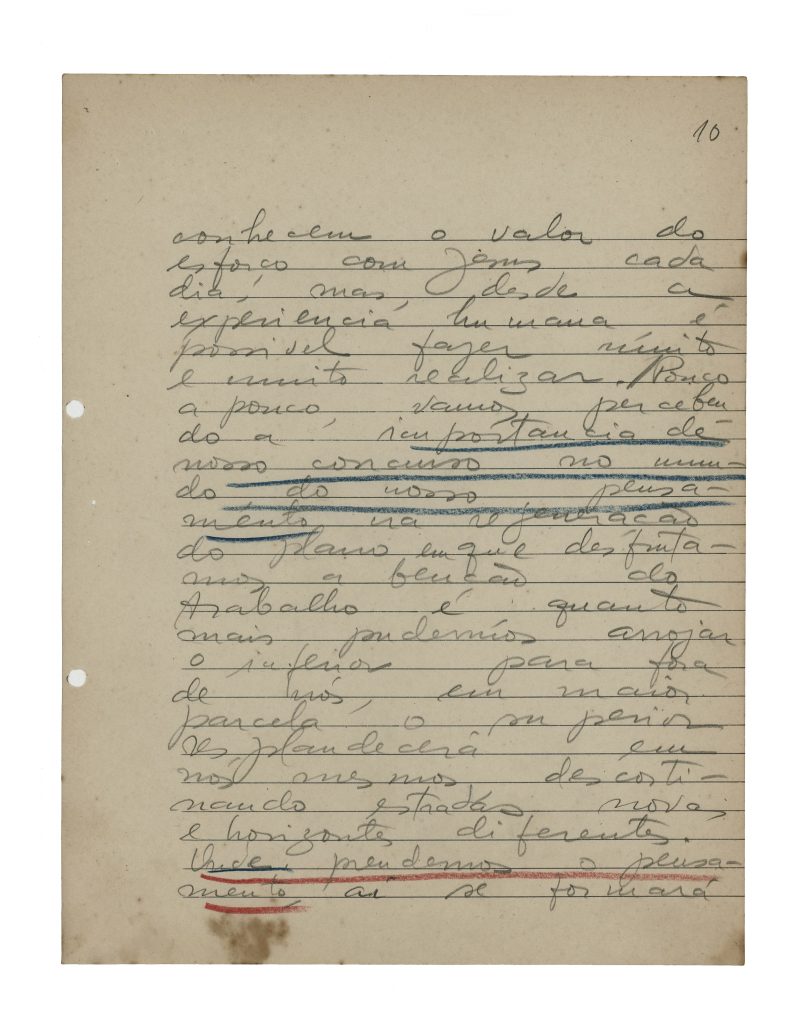 10
conhecem o valor do
esforço com Jesus cada
dia, mas, desde a
experiencia humana é
possivel fazer muito
e muito realizar. Pouco
a pouco, vamos perceben
do a importancia de
nosso concurso no mun-
do do nosso pensa-
mento na regeneração
do plano em que desfruta-
mos a benção do
trabalho e quanto
mais pudermos arrojar
o inferior para fora
de nós, em maior
parcela o superior
resplandecerá em
nós mesmos descorti-
nando estradas novas
e horizontes diferentes.
Onde prendemos o pensa-
mento, aí se formará